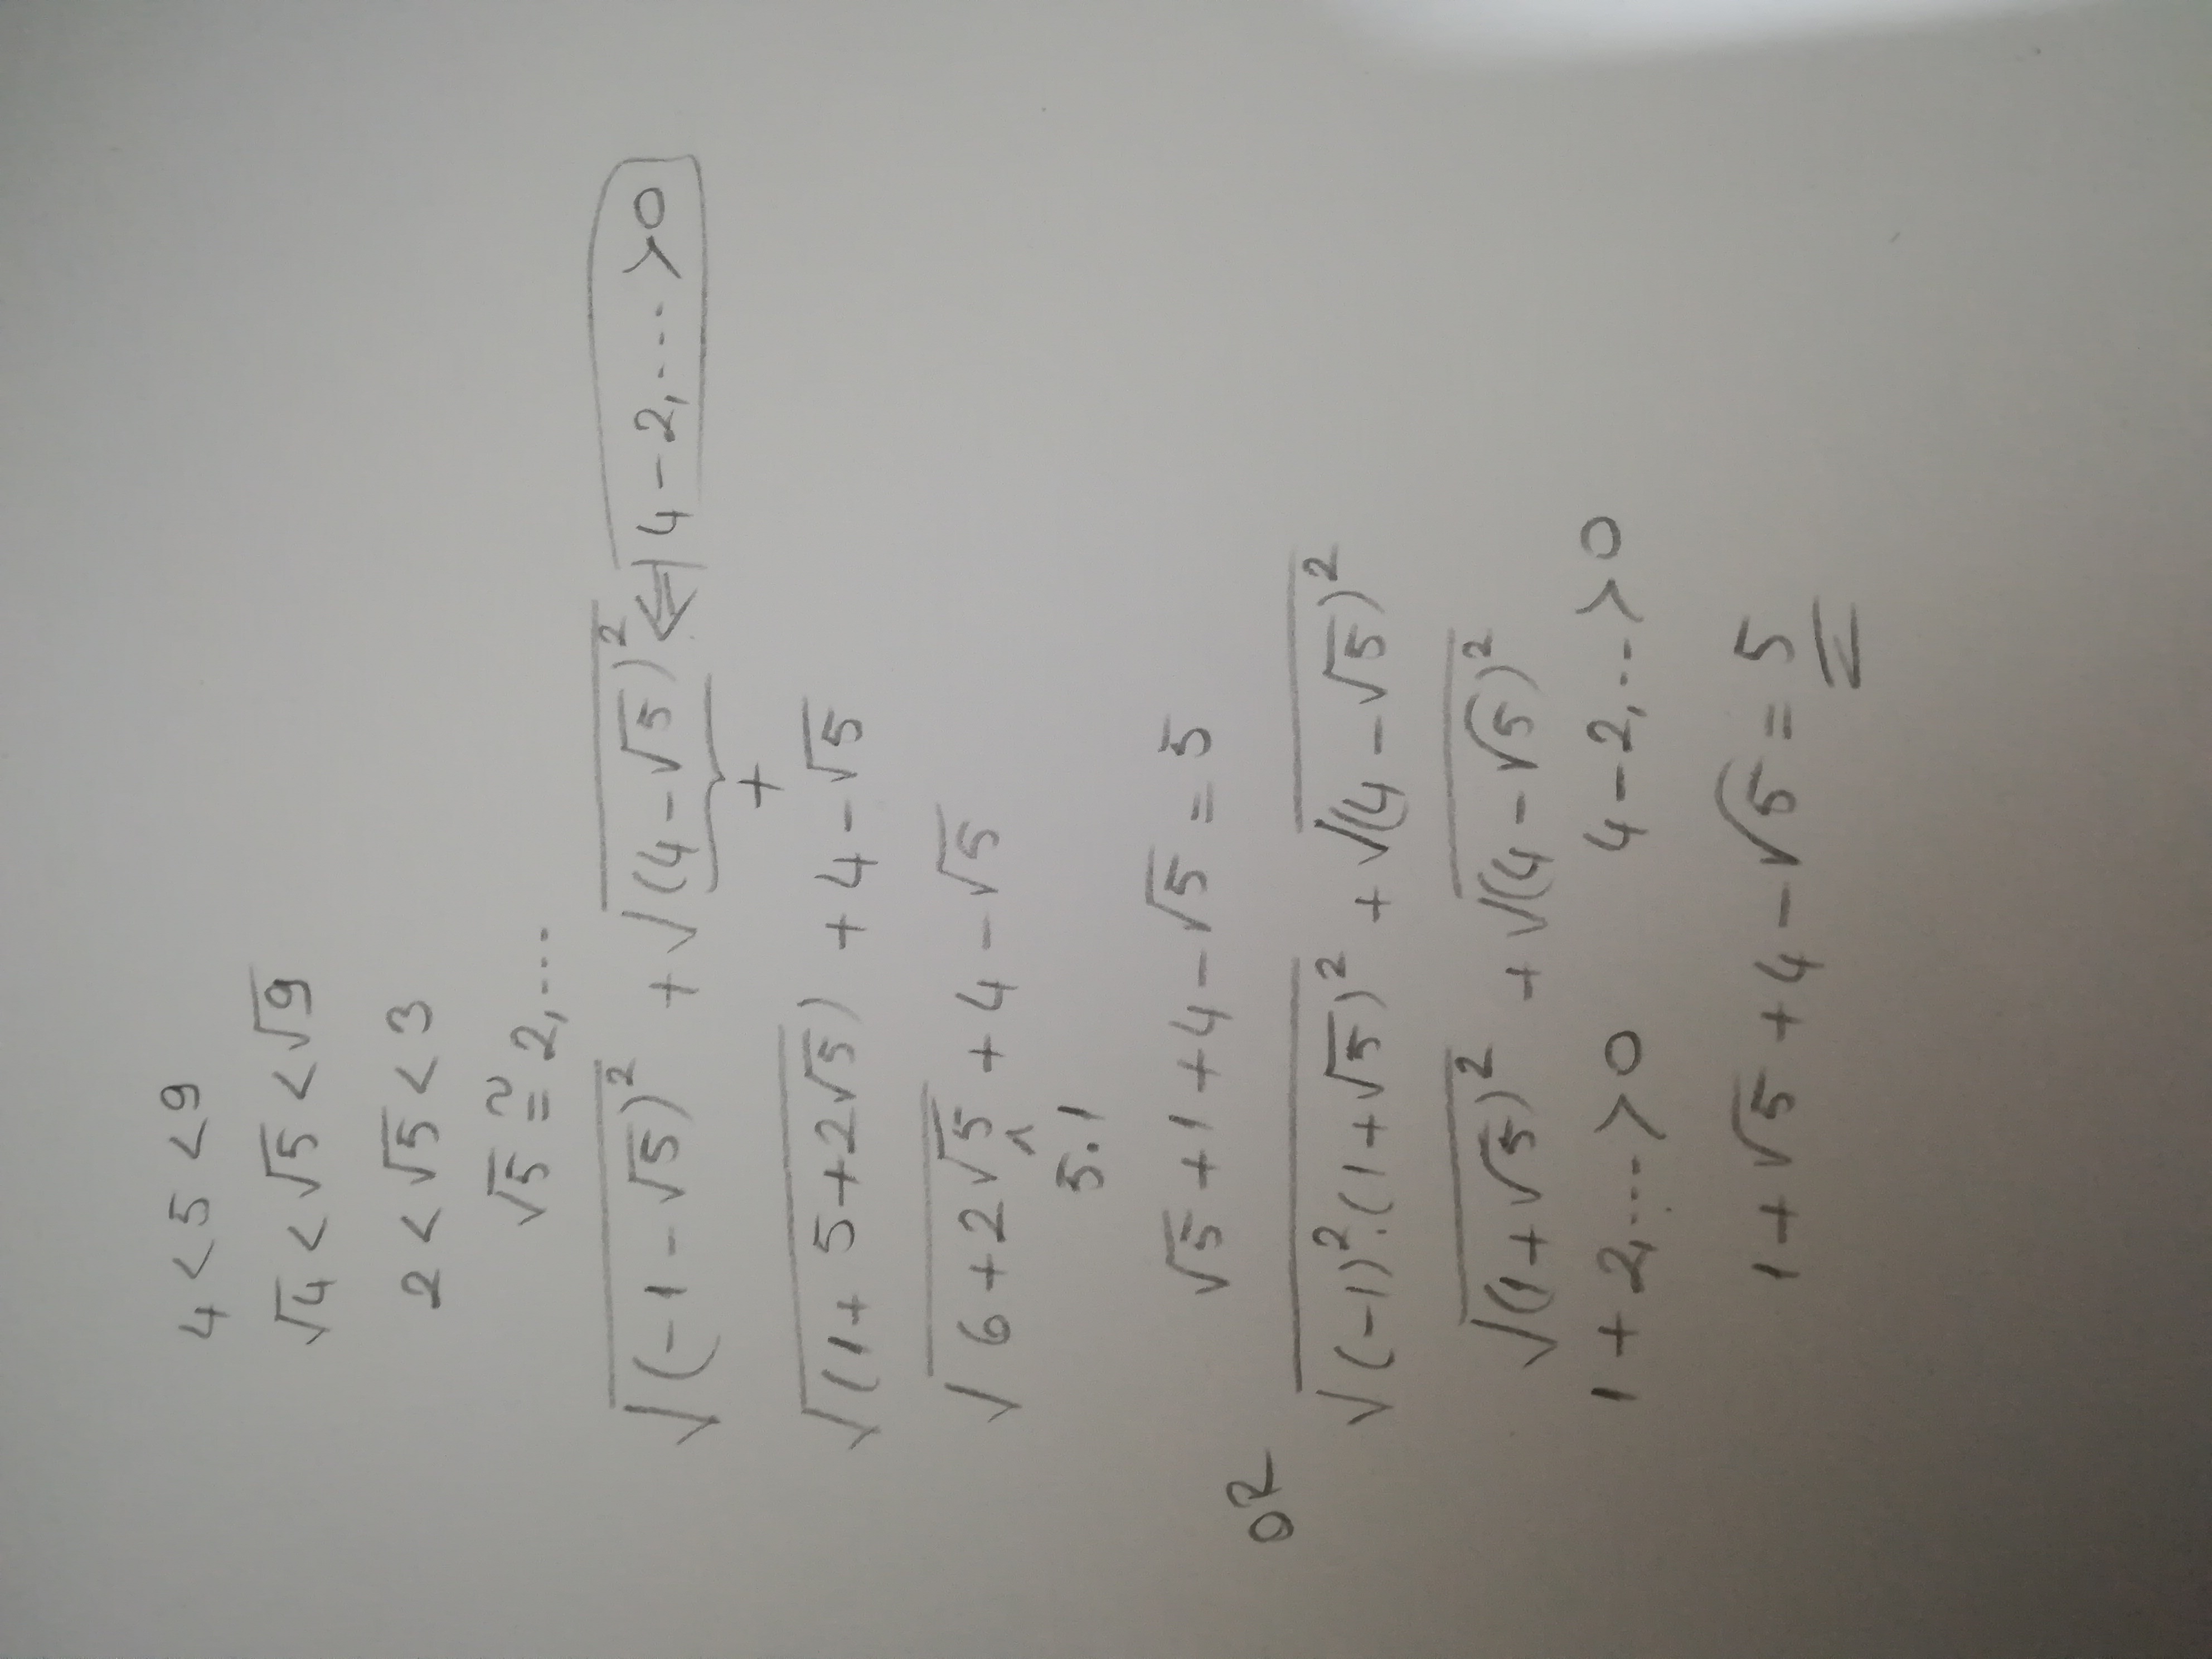 4 < 5 < 9
√4 < √5 < √9
2 < √5 < 3
√5 ≅ 2,....
√(-1-√5)² + √(4-√5)² ← 4-2,... >0
+
√(1+5+2√5) + 4-√5
√6+2√5 + 4-√5
5.1
√5+1+4-√5 = 5
or
√(-1)².(1+√5)² + √(4-√5)²
√(1+√5)² + √(4-√5)²
1+2,... >0 4-2,... >0
1+√5+4-√5 = 5